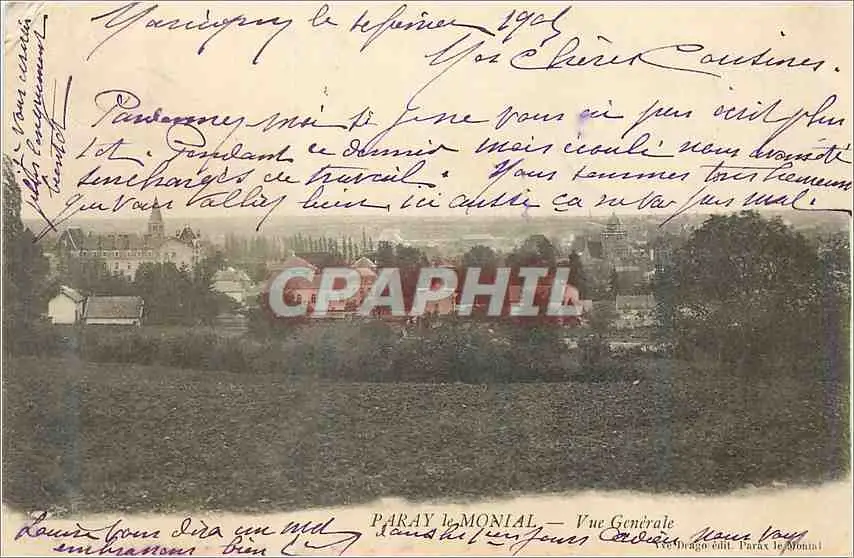 Marigny le 10 février 1905
Mes Chères Cousines,
Pardonnez moi si je ne vous ai pas écrit plus
tot. Pendant ce dernier mois écoulé nous avons été
surchargés de travail. Nous sommes très heureux
que vous alliez bien ici aussi ça ne va pas mal.
CPARAMA
PARAY le MONIAL — Vue Générale
Vve Drago édit. Paray le Monial
Louise vous dira un mot dans quelques jours Adieu nous vous
embrassons bien